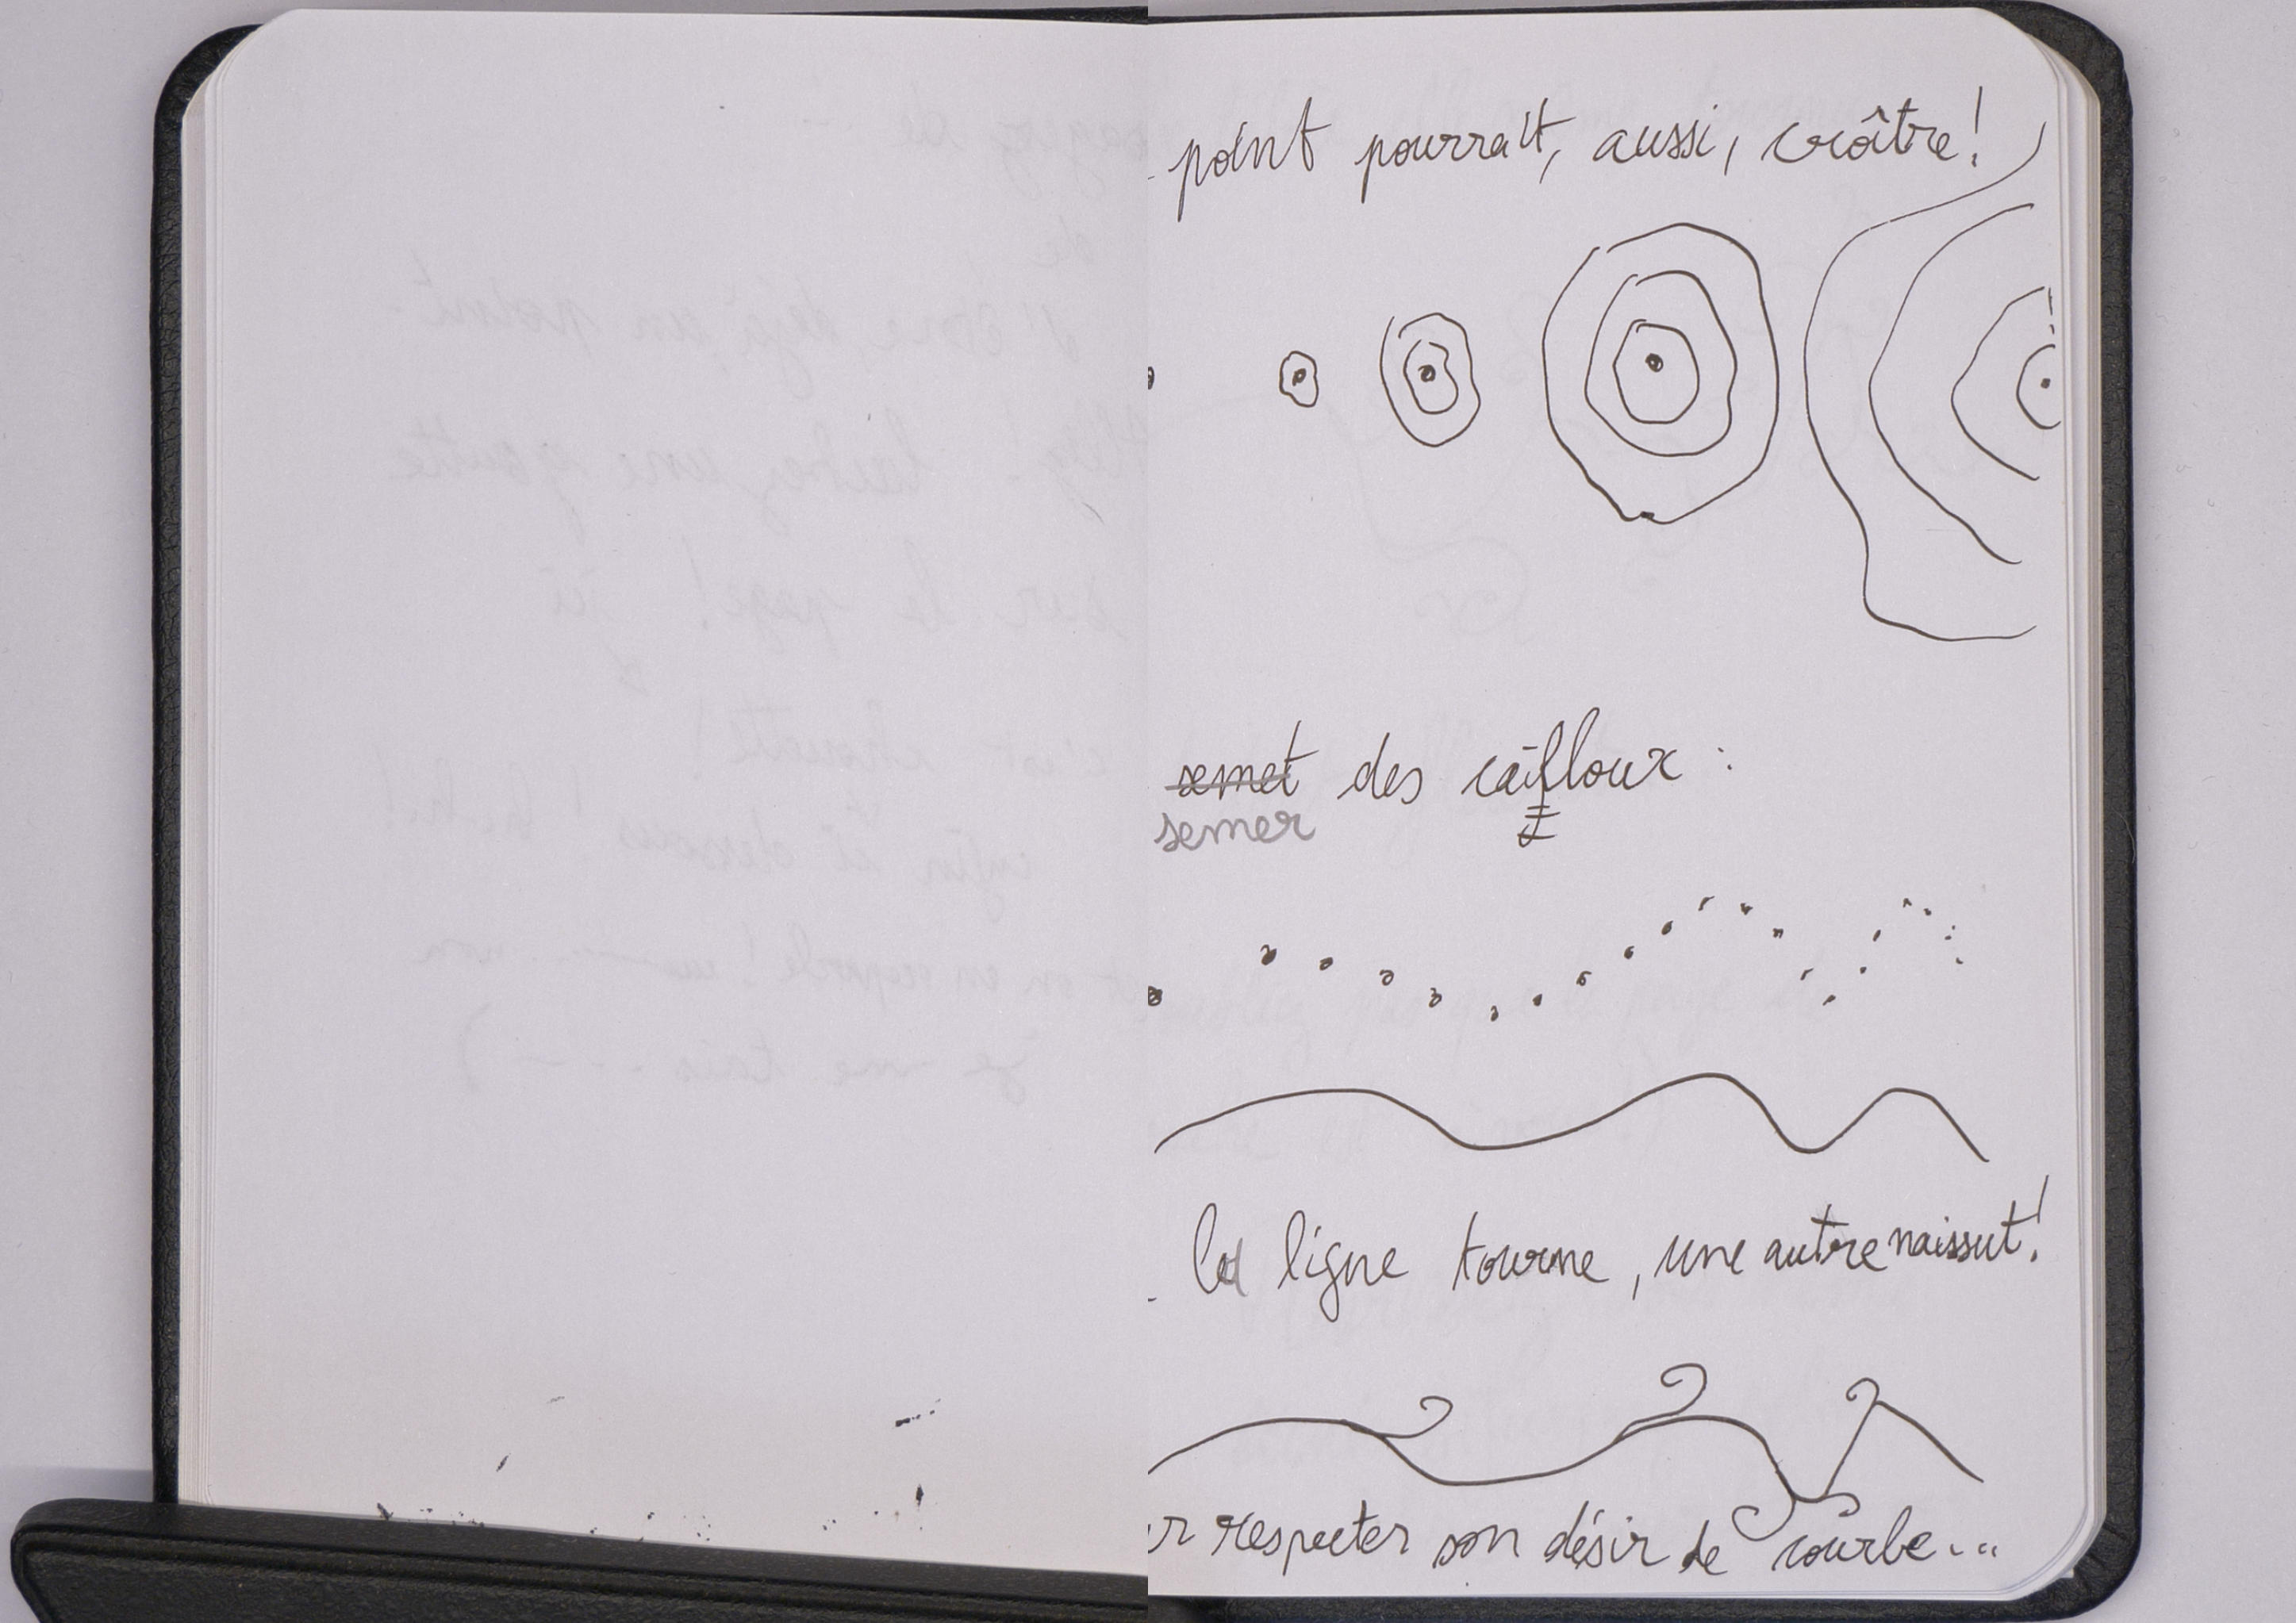 point pourrait, aussi, croître!
semet des cailloux :
semer
la ligne tourne, une autre naissut!
respecter son désir de courbe...